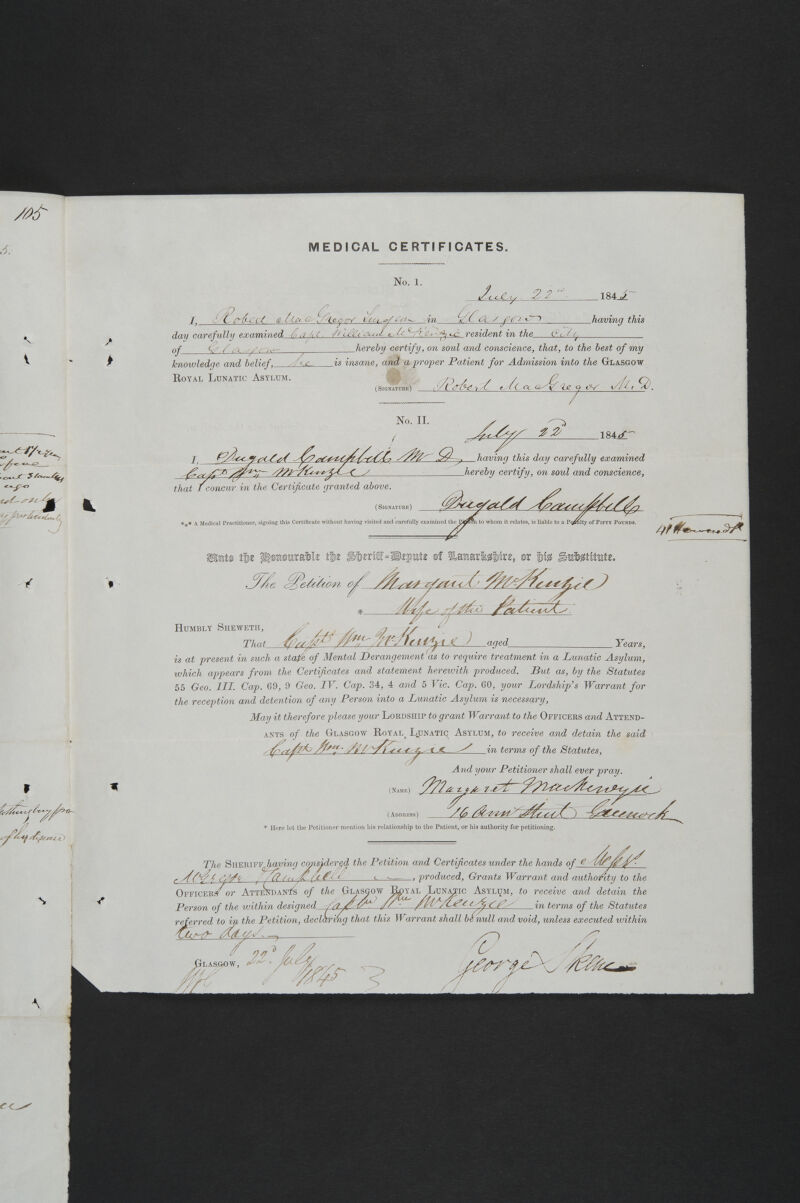 105
5.
MEDICAL CERTIFICATES.
No. 1.
July 22nd 1845
I, Robert MacGregor Surgeon in Glasgow having this
day carefully examined Capt William McKenzie resident in the City
of Glasgow hereby certify, on soul and conscience, that, to the best of my
knowledge and belief, he is insane, and a proper Patient for Admission into the GLASGOW
ROYAL LUNATIC ASYLUM.
(SIGNATURE) Robert MacGregor M.D.
No. II.
July 22d 1845
I, Dugald Campbell M D, having this day carefully examined
Captn Wm McKinzie hereby certify, on soul and conscience,
that I concur in the Certificate granted above.
(SIGNATURE) Dugald Campbell
*⁎* A Medical Practitioner, signing this Certificate without having visited and carefully examined the Person to whom it relates, is liable to a Penalty of FIFTY POUNDS.
Unto the Honourable the Sheriff-Depute of Lanarkshire, or his Substitute.
The Petition of Margaret McKenzie
* Wife of the Patient
HUMBLY SHEWETH,
That Captn Wm McKenzie aged Years,
is at present in such a state of Mental Derangement as to require treatment in a Lunatic Asylum,
which appears from the Certificates and statement herewith produced. But as, by the Statutes
55 Geo. III. Cap. 69, 9 Geo. IV. Cap. 34, 4 and 5 Vic. Cap. 60, your Lordship's Warrant for
the reception and detention of any Person into a Lunatic Asylum is necessary,
May it therefore please your LORDSHIP to grant Warrant to the OFFICERS and ATTEND-
ANTS of the GLASGOW ROYAL LUNATIC ASYLUM, to receive and detain the said
Captn Wm. McKenzie in terms of the Statutes,
And your Petitioner shall ever pray.
(NAME) Margaret Mackenzie
(ADDRESS) 16 Ann Street Greenock
* Here let the Petitioner mention his relationship to the Patient, or his authority for petitioning.
The SHERIFF having considered the Petition and Certificates under the hands of Messrs.
McGregor Campbell, produced, Grants Warrant and authority to the
OFFICERS or ATTENDANTS of the GLASGOW ROYAL LUNATIC ASYLUM, to receive and detain the
Person of the within designed Captn Wm McKenzie in terms of the Statutes
referred to in the Petition, declaring that this Warrant shall be null and void, unless executed within
two days.
GLASGOW, 22d July
1845
George Skene